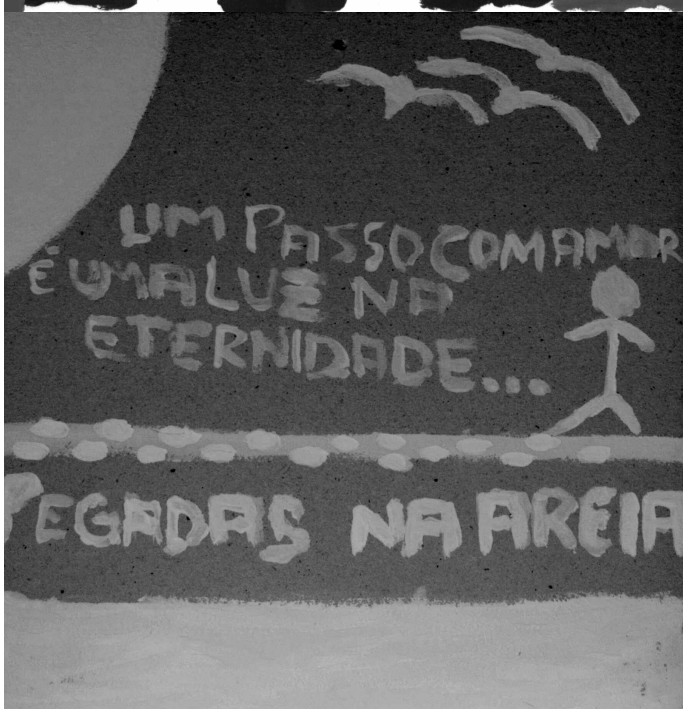 UM PASSO COM AMOR
É UMA LUZ NA
ETERNIDADE...
PEGADAS NA AREIA